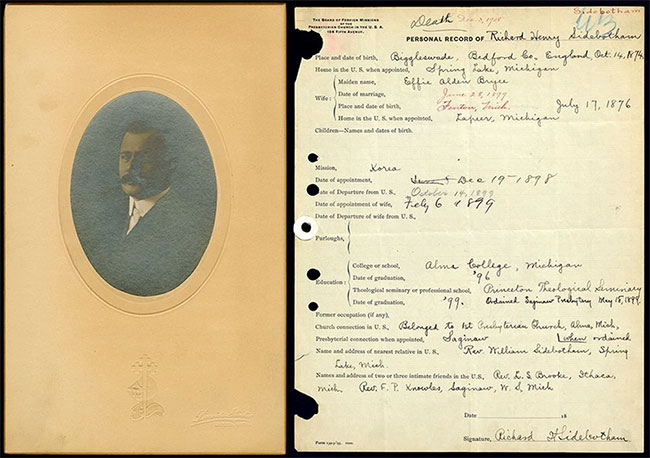 Sidebotham
THE BOARD OF FOREIGN MISSIONS
OF THE
PRESBYTERIAN CHURCH IN THE U. S. A.
156 FIFTH AVENUE.
Death Dec 3, 1908
PERSONAL RECORD OF Richard Henry Sidebotham
Place and date of birth, Biggleswade, Bedford Co. England Oct. 14, 1874
Home in the U. S. when appointed, Spring Lake, Michigan
Wife: Maiden name, Effie Alden Bryce
Date of marriage, June 28, 1899
Place and date of birth, Fenton, Mich. July 17, 1876
Home in U. S. when appointed, Lapeer, Michigan
Children—Names and dates of birth.
Mission, Korea
Date of appointment, Dec 19 1898
Date of Departure from U. S., October 14, 1899
Date of appointment of wife, Feby 6 1899
Date of Departure of wife from U. S.,
Furloughs,
Education: College or school, Alma College, Michigan
Date of graduation, '96
Theological seminary or professional school, Princeton Theological Seminary
Date of graduation, '99. Ordained Saginaw Presbytery May 18, 1899.
Former occupation (if any),
Church connection in U. S., Belonged to 1st Presbyterian Church, Alma, Mich.
Presbyterial connection when appointed, Saginaw when ordained
Name and address of nearest relative in U. S., Rev. William Sidebotham, Spring
Lake, Mich.
Names and address of two or three intimate friends in the U. S., Rev. L. S. Brooke, Ithaca,
Mich. Rev. F. P. Knowles, Saginaw, W. S. Mich
Date 18
Signature, Richard H Sidebotham